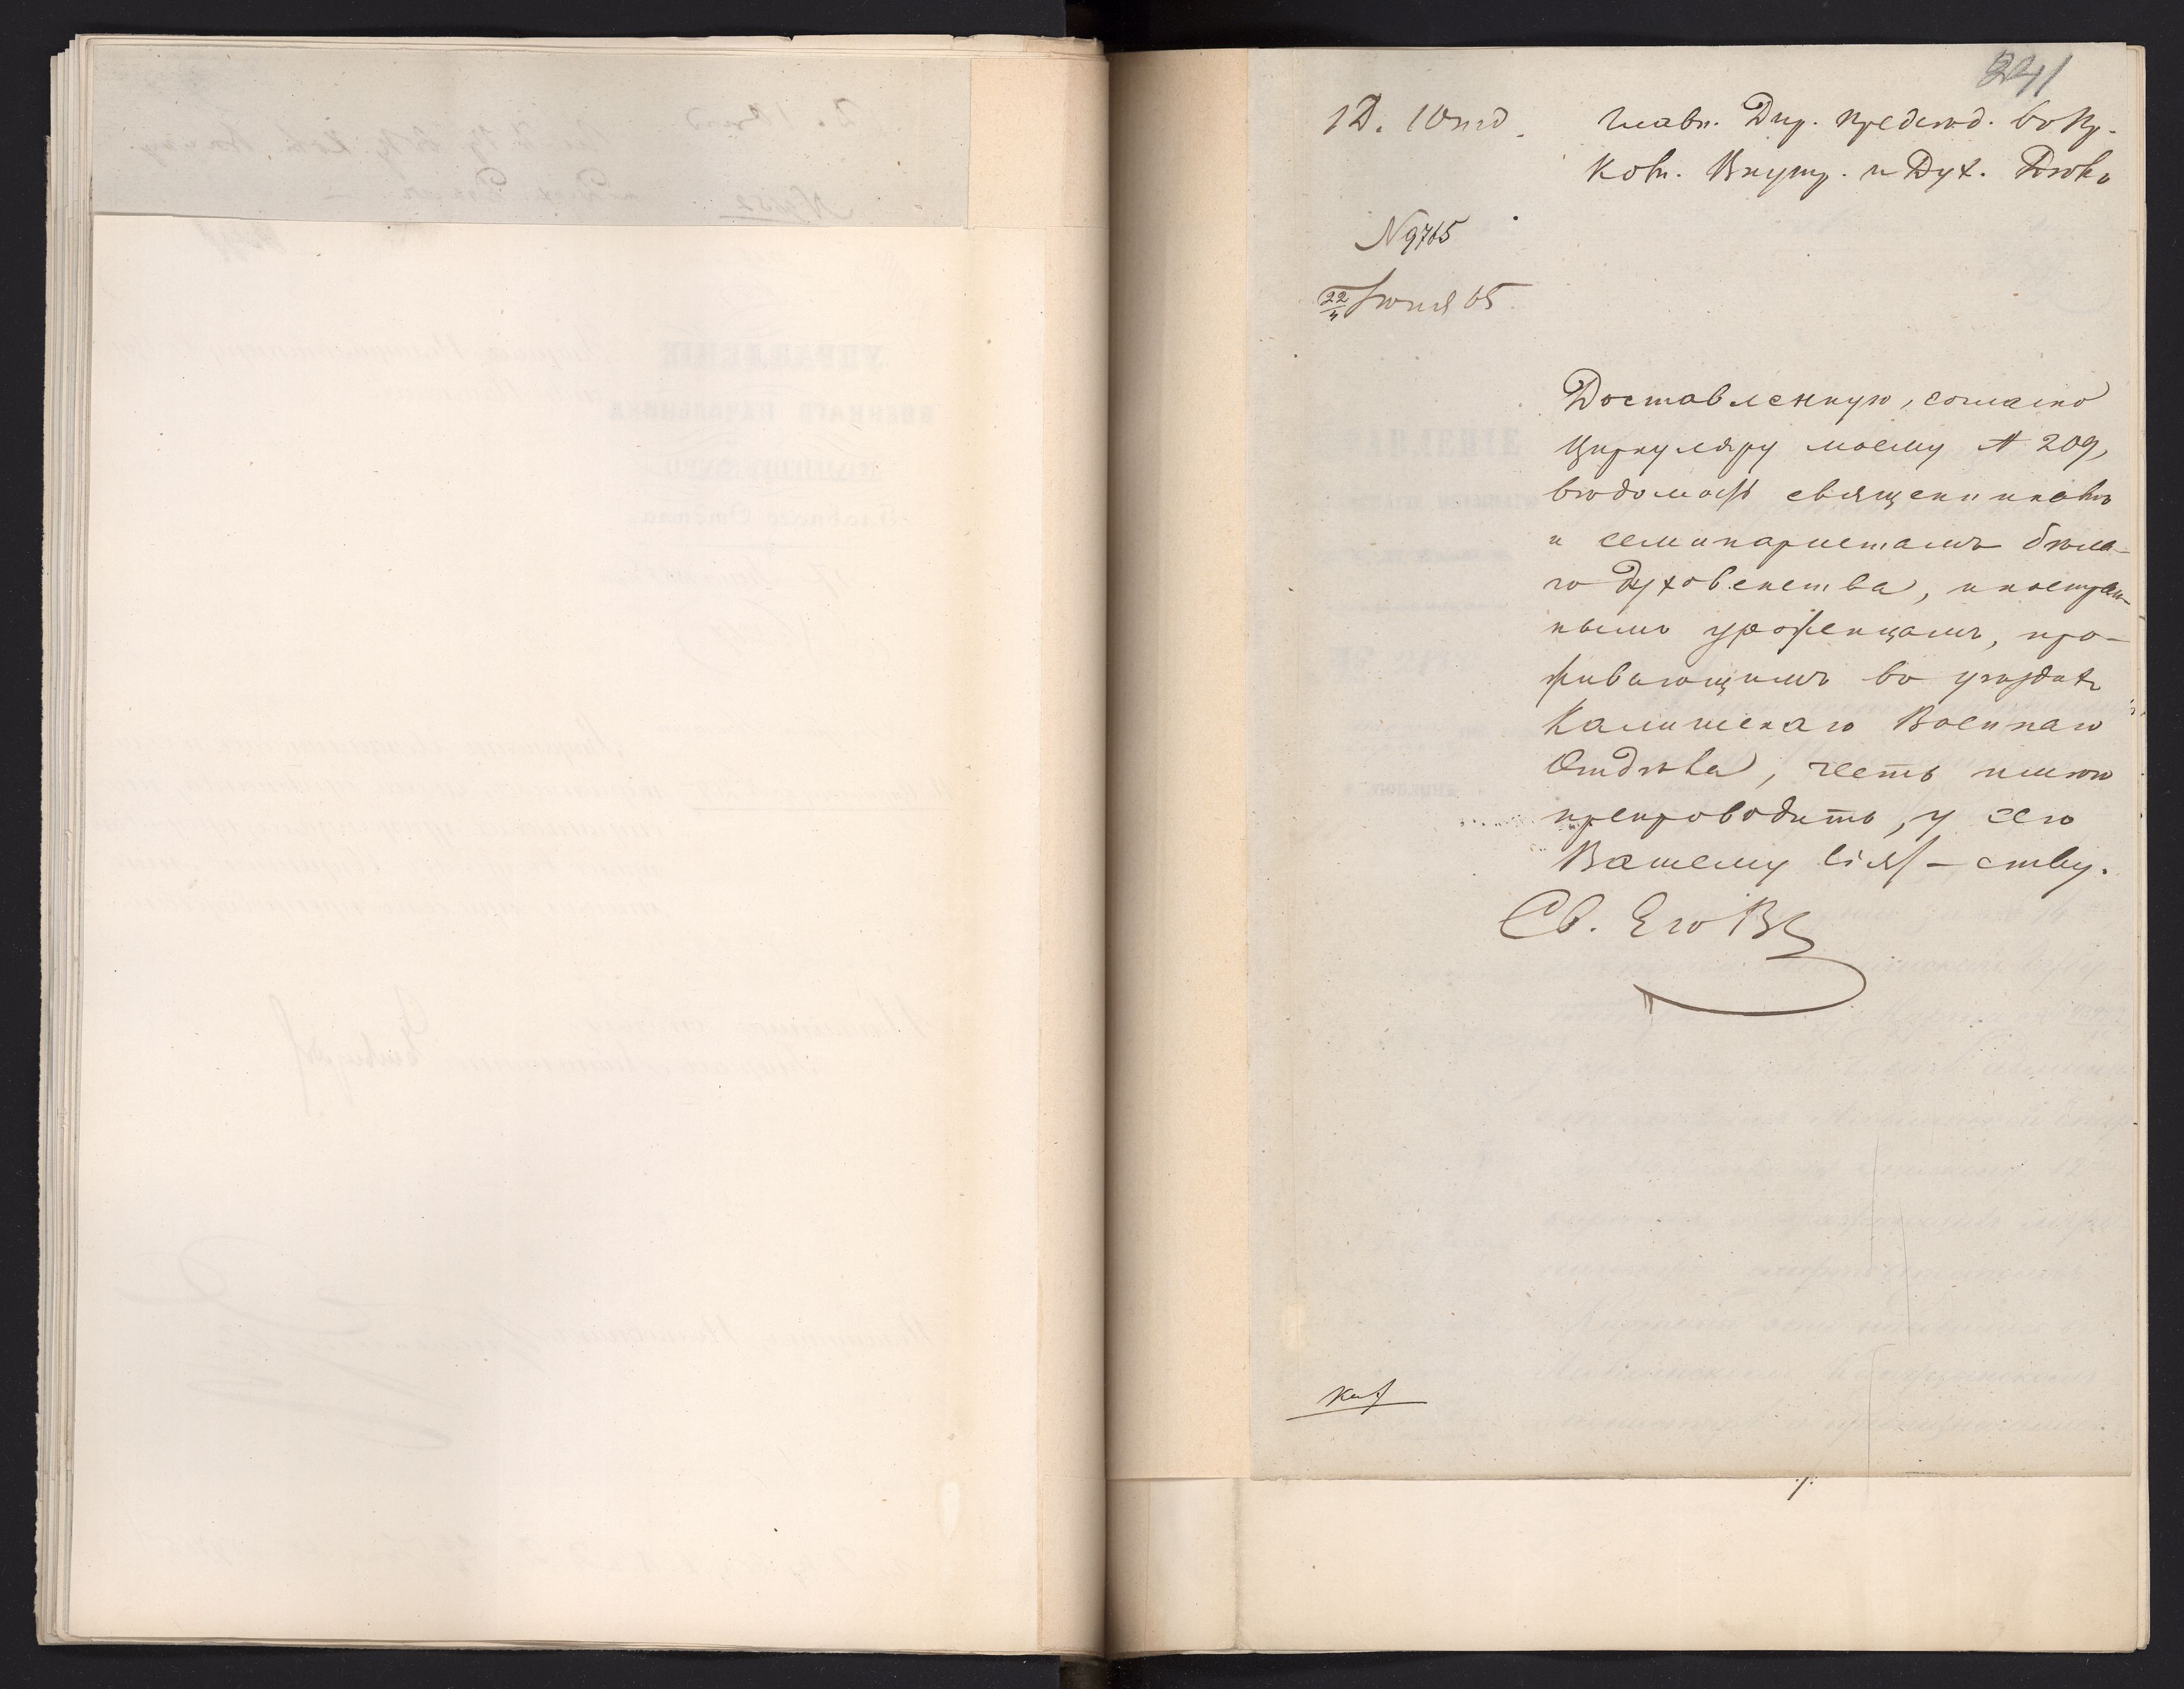 241
1 Д. 1 Отд.
Главн. Дир. Предсѣд. въ Пр.
Ком. Внутр. и Дух. Дѣлъ
N 9765
22/4 Іюня 65.
Доставленную, согласно
Циркуляру моему № 209,
вѣдомость священникамъ
и семинаристамъ бѣла-
го Духовенства, иностран-
нымъ уроженцамъ, про-
живающимъ въ уѣздахъ
Калишскаго Военнаго
Отдѣла, честь имѣю
препроводить, у сего
Вашему Сіят-ству.
Св. Его В